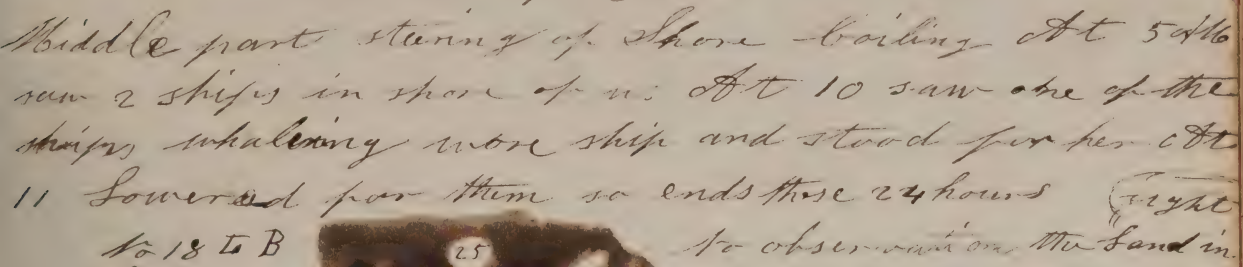 Middle part steering of Shore boiling At 5 AM
saw 2 ships in shore of us At 10 saw one of the
ships whaleing wore ship and stood for her At
11 Lowered for them so ends these 24 hours
No 18 To B 25 No observation the Land in